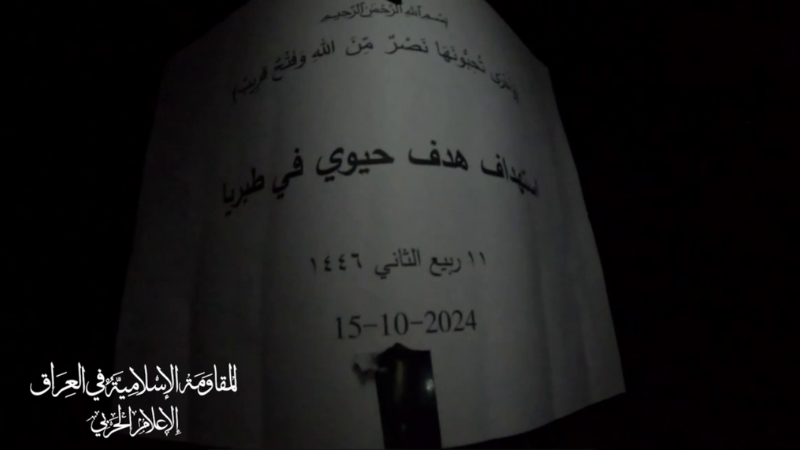 بِسْمِ اللهِ الرَّحْمَنِ الرَّحِيمِ
(وَأُخْرَى تُحِبُّونَهَا نَصْرٌ مِّنَ اللهِ وَفَتْحٌ قَرِيبٌ)
استهداف هدف حيوي في طبريا
١١ ربيع الثاني ١٤٤٦
15-10-2024
المقاومة الإسلامية في العراق
الإعلام الحربي